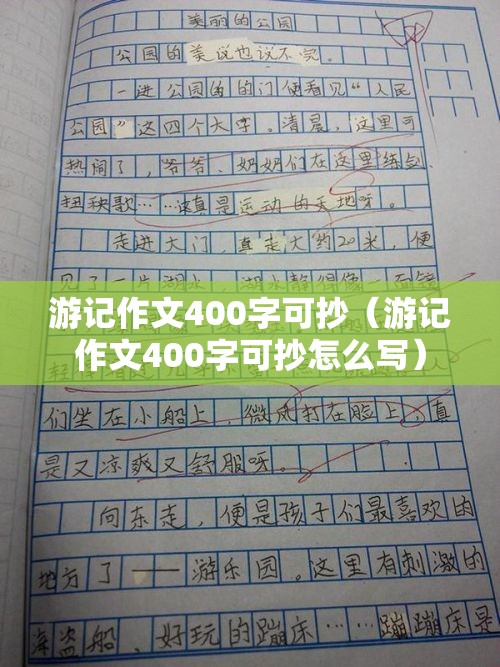 美丽的公园
公园的美说也说不完。
一进公园的的门便看见“人民
公园”这四个大字。清晨，这里可
热闹了，爷爷、奶奶们在这里练剑、
扭秧歌……这真是运动的天地呀。
走进大门，直走大约20米，便
见了一片湖水，湖水静得像一面镜
游记作文400字可抄（游记
作文400字可抄怎么写）
们坐在小船上，微风打在脸上，真
是又凉爽又舒服呀。
向东走，便是孩子们最喜欢的
地方了——游乐园。这里有刺激的
海盗船、好玩的蹦床……蹦蹦床是